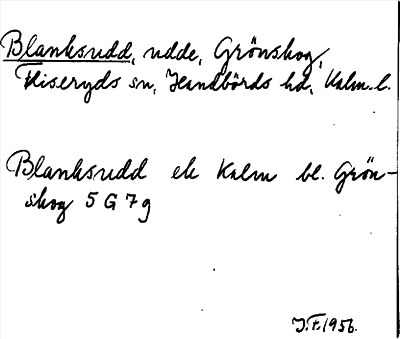 Blanksudd, udde, Grönskog,
Fliseryds sn, Handbörds hd, Kalm. l.
Blanksudd ek Kalm bl. Grön-
skog 5 G 7 g
J.F. 1956.